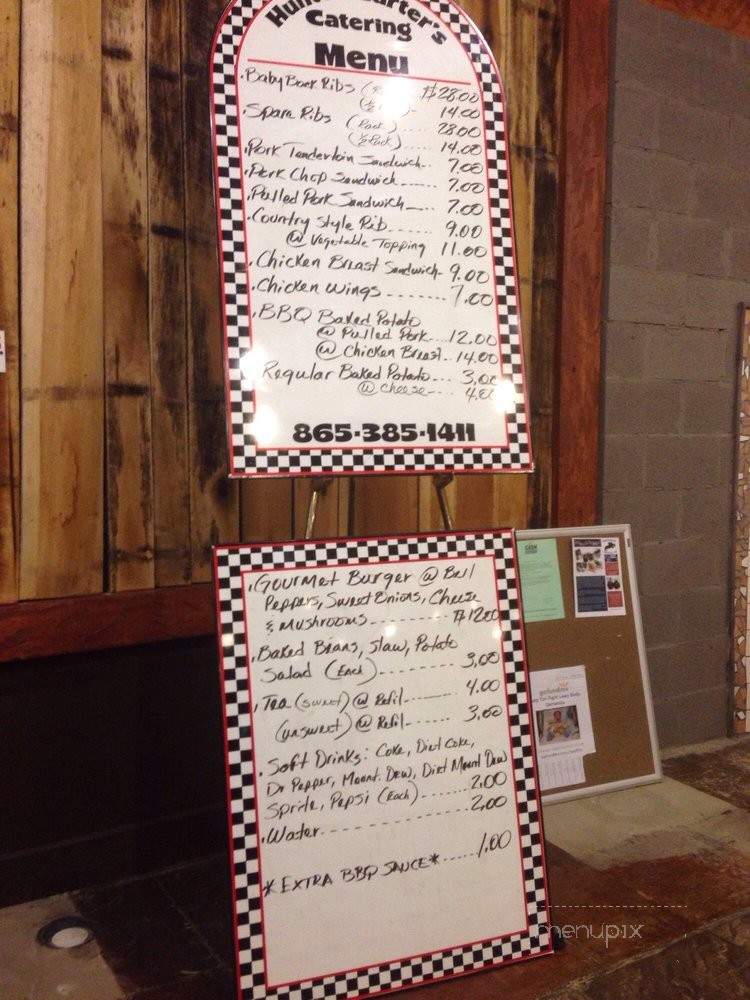 Catering
Menu
Baby Back Ribs $28.00
(½ 14.00
Spare Ribs (Rack) 28.00
(½ Rack) 14.00
Pork Tenderloin Sandwich 7.00
Pork Chop Sandwich 7.00
Pulled Pork Sandwich 7.00
Country Style Rib 9.00
@ Vegetable Topping 11.00
Chicken Breast Sandwich 9.00
Chicken Wings 7.00
BBQ Baked Potato
@ Pulled Pork 12.00
@ Chicken Breast 14.00
Regular Baked Potato 3.00
@ Cheese 4.00
865-385-1411
Gourmet Burger @ Bell
Peppers, Sweet Onions, Cheese
& Mushrooms $12.00
Baked Beans, Slaw, Potato
Salad (Each) 3.00
Tea (sweet) @ Refil 4.00
(unsweet) @ Refil 3.00
Soft Drinks: Coke, Diet Coke,
Dr Pepper, Mount. Dew, Diet Mount Dew
Sprite, Pepsi (Each) 2.00
Water 2.00
*EXTRA BBQ SAUCE* 1.00
menupix